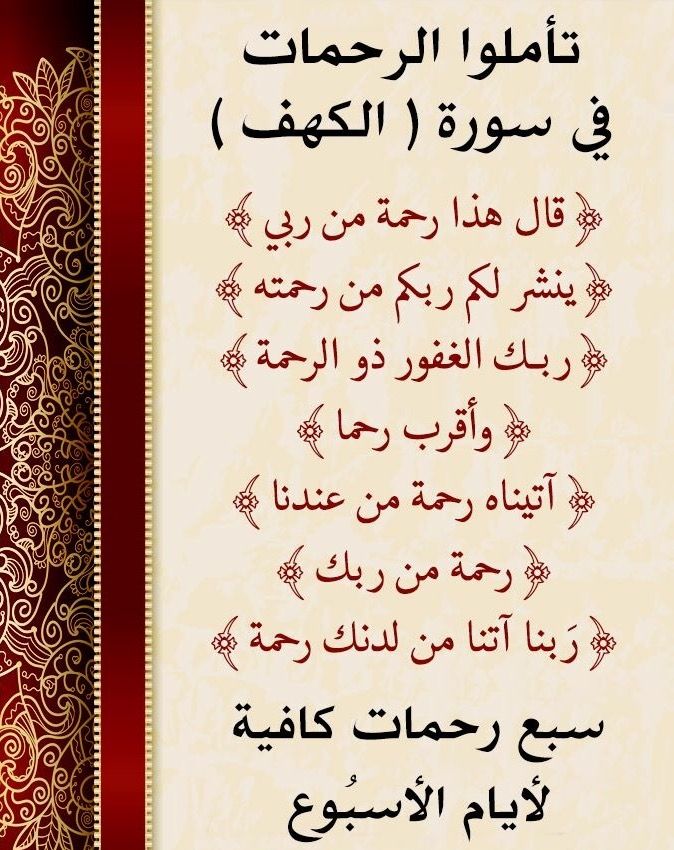 تأملوا الرحمات
في سورة ( الكهف )
﴿ قال هذا رحمة من ربي ﴾
﴿ ينشر لكم ربكم من رحمته ﴾
﴿ ربك الغفور ذو الرحمة ﴾
﴿ وأقرب رحما ﴾
﴿ آتيناه رحمة من عندنا ﴾
﴿ رحمة من ربك ﴾
﴿ رَبنا آتنا من لدنك رحمة ﴾
سبع رحمات كافية
لأيام الأسبُوع